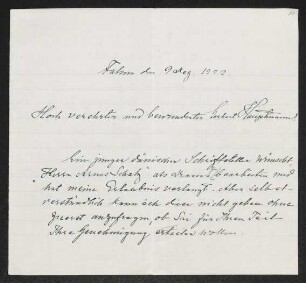 den 9 Aug. 1922.
Hoch verehrter und bewunderter Gerhart Hauptmann!
Ein junger dänischer Schriftsteller wünscht
"Herrn Arnes Schatz" als Drama zu bearbeiten und
hat meine Erlaubnis verlangt. Aber selbst-
verständlich kann ich diese nicht geben ohne
zuerst anzufragen, ob Sie für Ihren Teil
Ihre Genehmigung erteilen wollen.